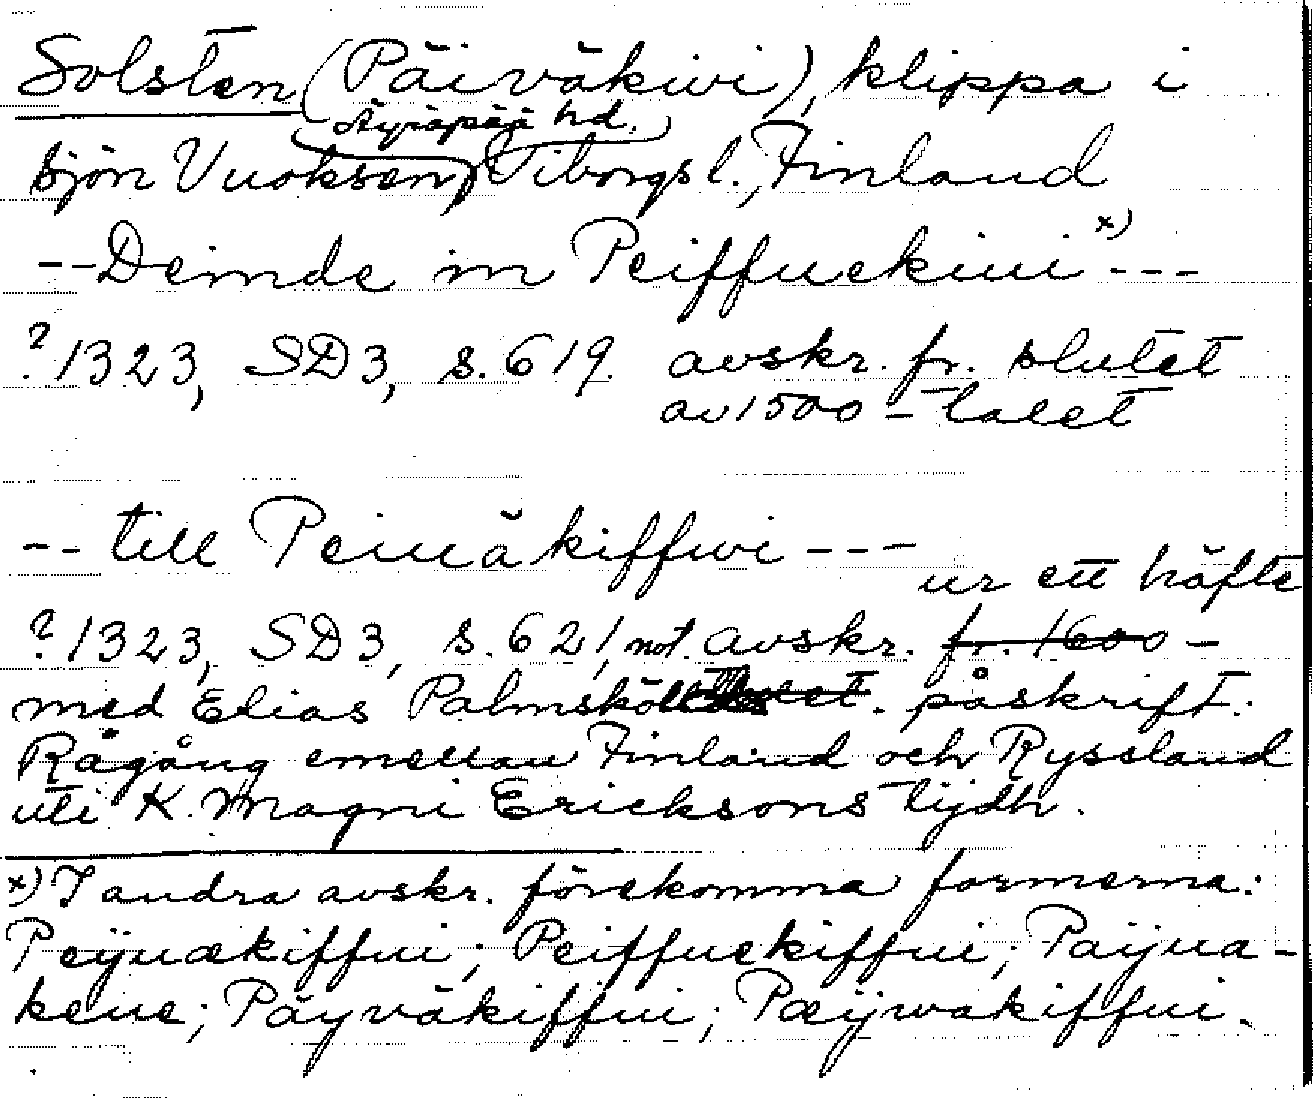 Solsten (Päiväkivi), klippa i
Äyräpää hd.
sjön Vuoksen, Viborgs l., Finland
--Deinde in Peiffuekiui x) ---
? 1323, SD3, s. 619. avskr. fr. slutet
av 1500-talet
-- till Peiuäkiffwi ---
ur ett häfte
? 1323, SD3, s. 621, not. avskr. fr. 1600-
med Elias Palmsköld påskrift:
Rågång emellan Finland och Ryssland
uti K. Magni Ericksons tijdh.
x) I andra avskr. förekomma formerna:
Peijuækiffui; Peiffuekiffui; Paijua-
keue; Päyväkiffui; Pæijwakiffui.